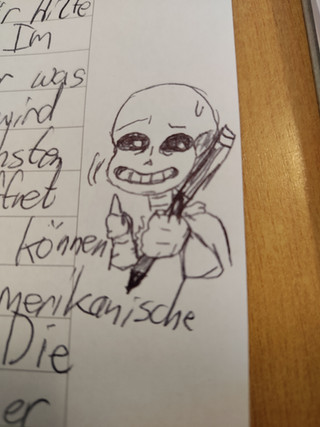 r Hilfe
Im
r was
wird
können
merikanische
Die
er